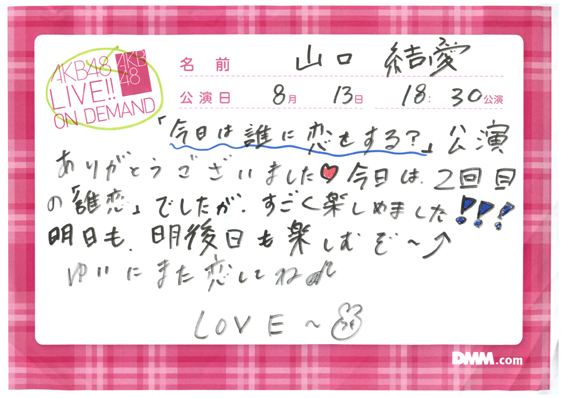 AKB48
LIVE!!
ON DEMAND
AKB
48
名前 山口 結愛
公演日 8月 13日 18:30公演
「今日は誰に恋をする?」公演
ありがとうございました♥今日は、2回目
の「誰恋」でしたが、すごく楽しめました!!!
明日も、明後日も楽しむぞ〜↗
ゆいにまた恋してね♪
LOVE〜
DMM.com